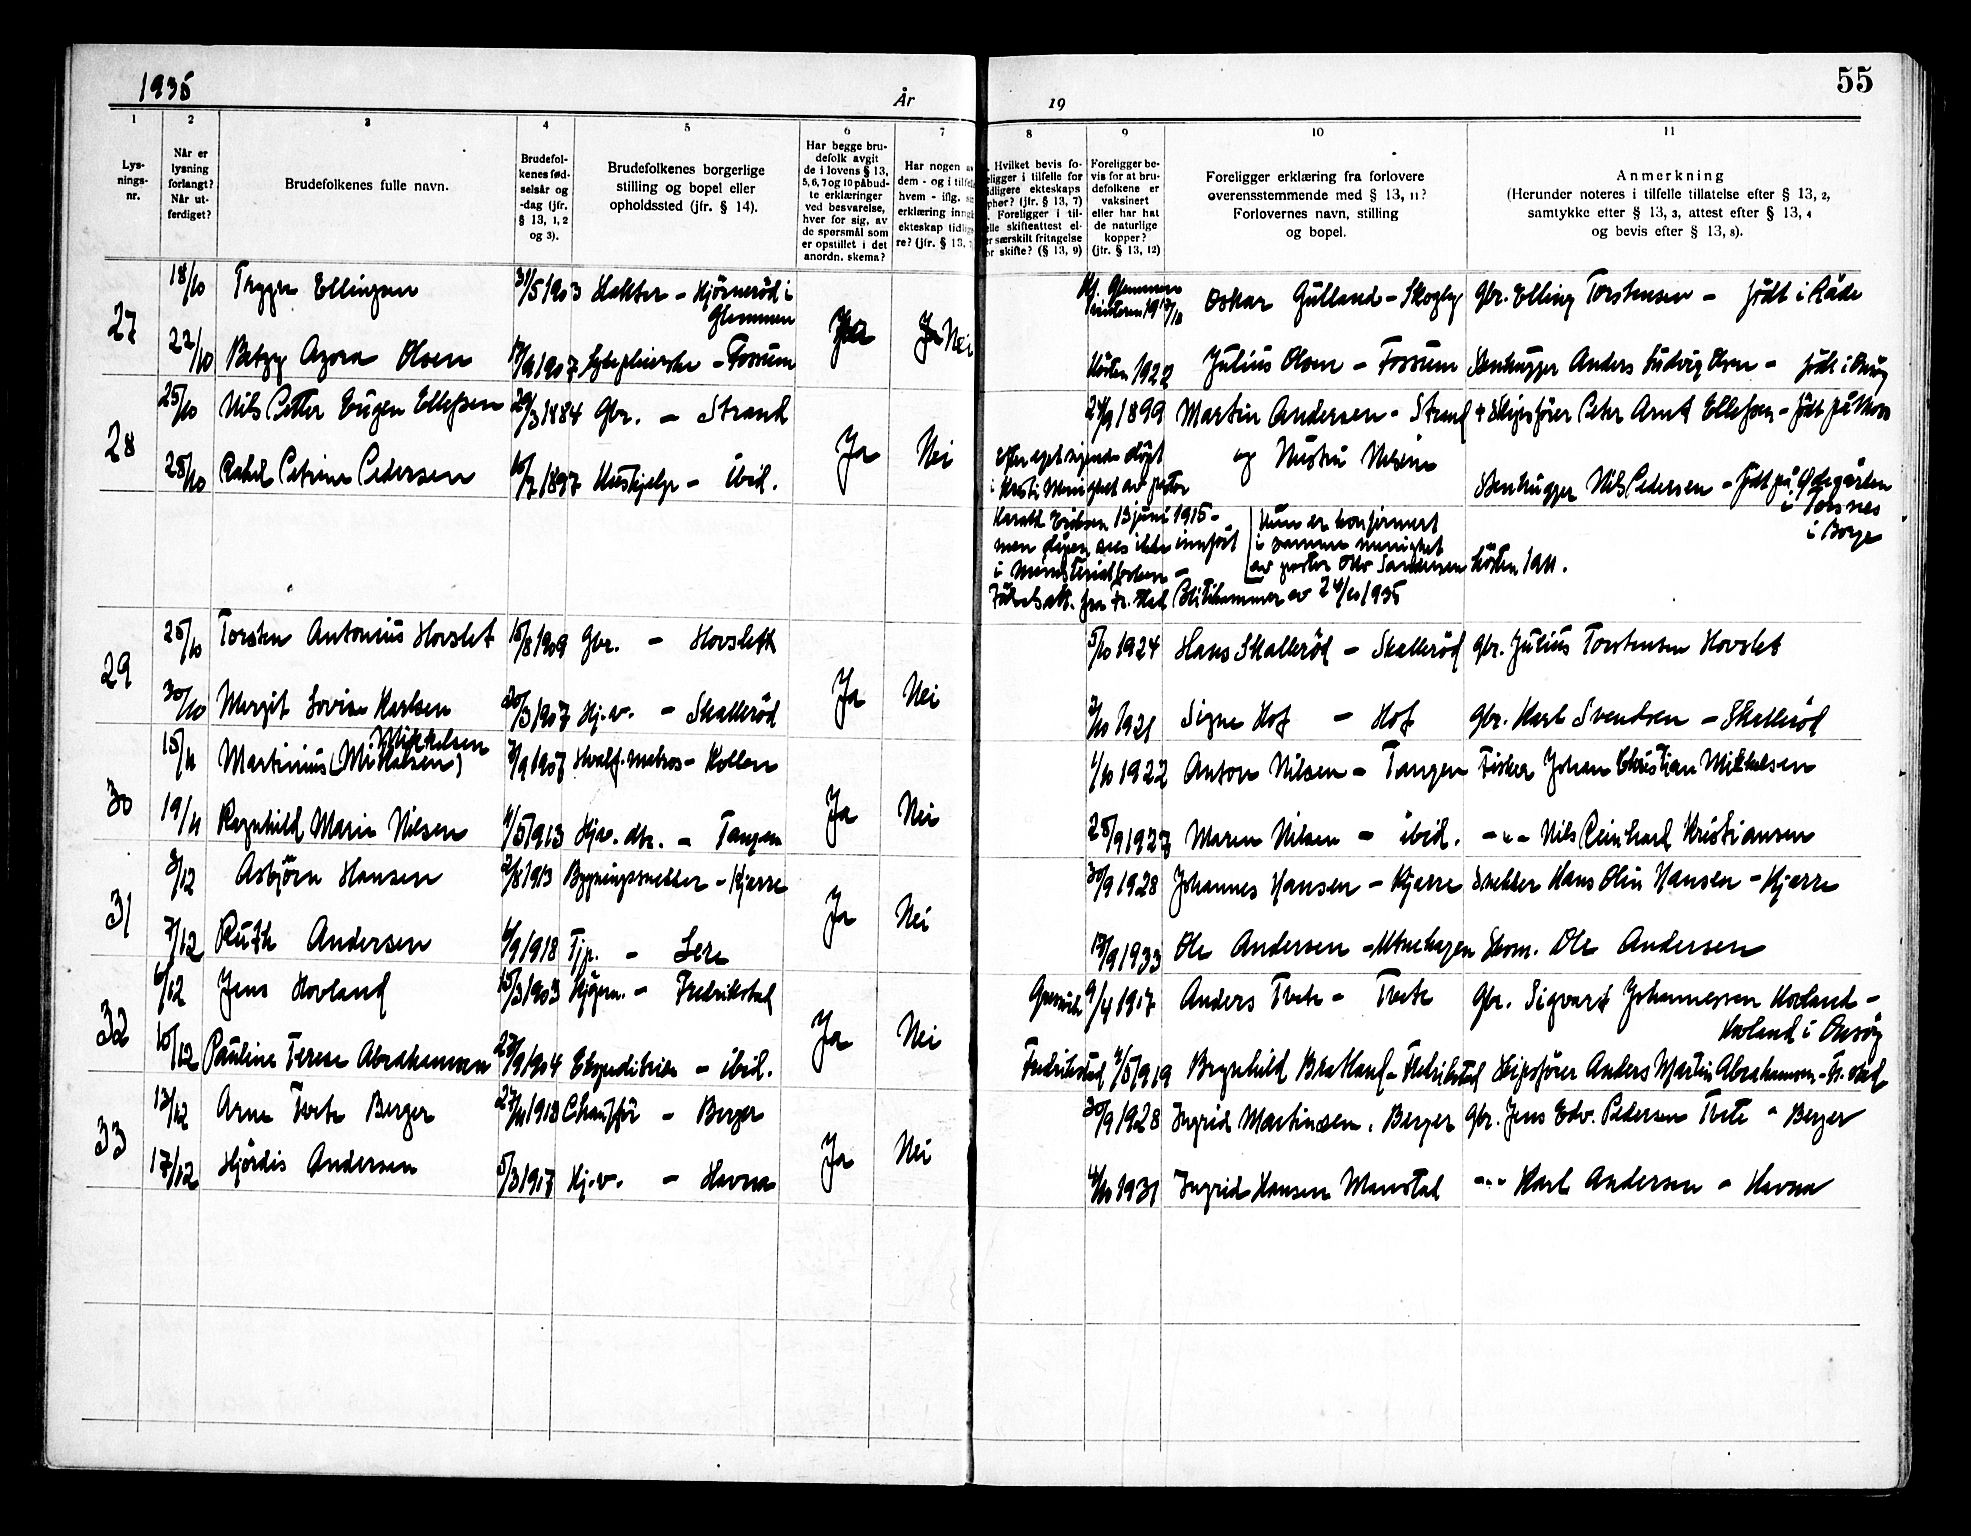 1935
År
19
55
1
2
3
4
5
6
7
8
9
10
11
Lys-
nings-
nr.
Når er
lysning
forlangt?
Når ut-
ferdiget?
Brudefolkenes fulle navn.
Brudefol-
kenes fød-
selsår og
-dag (jfr.
§ 13, 1, 2
og 3).
Brudefolkenes borgerlige
stilling og bopel eller
opholdssted (jfr. § 14).
Har begge bru-
defolk avgit
de i lovens § 13,
5, 6, 7 og 10 påbud-
te erklæringer
ved besvarelse,
hver for sig, av
de spørsmål som
er opstillet i det
anordn. skema?
Har nogen
dem - og i tilfel
hvem - iflg.
erklæring inng
ekteskap tidlig
re? (jfr. § 13,
Hvilket bevis fo-
eligger i tilfelle for
idligere ekteskaps
phør? (jfr. § 13, 7)
Foreligger i til-
elle skifteattest el-
er særskilt fritagelse
or skifte? (§ 13, 9)
Foreligger be-
vis for at bru-
defolkene er
vaksinert
eller har hat
de naturlige
kopper?
(jfr. § 13, 12)
Foreligger erklæring fra forlovere
overensstemmende med § 13, 11?
Forlovernes navn, stilling
og bopel.
Anmerkning
(Herunder noteres i tilfelle tillatelse efter § 13, 2,
samtykke efter § 13, 3, attest efter § 13, 4
og bevis efter § 13, 8).
27
18/10 Ellingsen 31/5 1903 - Hjørnerød i
Glemmen
Ja Nei
Oskar Gulland - Skogby Gbr. Elling Torstensen - født i Råde
22/10 Olsen 1907 - Fossum
Høsten 1922 Julius Olsen - Fossum Stenhugger Anders Ludvig Olsen - født i
28
25/10 Nils Petter Eugen Ellefsen 29/3 1884 Gbr. - Strand
Ja Nei
1899 Martin Andersen - Strand + Skipsfører Peter Arnt Ellefsen - født på
og Nilsen
28/10 Rakel Petrine Pedersen 1897 Hushjelp - ibid.
Stenhugger Nils Pedersen - født på Ødegården
i Torsnes
i Borge
Efter eget sigende døpt
i menighet av pastor
Harald Eriksen 13 juni 1915 -
men dåpen sees ikke innført
i Ministerialboken -
Hun er konfirmert
i samme menighet
av pastor høsten 1911.
fra Fr.stad Politikammer av 24/10 1935
29
25/10 Torsten Antonius Hovslet 15/8 1909 Gbr. - Hovslett
Ja Nei
5/10 1924 Hans Skallerød - Skallerød Gbr. Julius Torstensen Hovslet
30/10 Margit Lovise Karlsen 20/3 1907 Hj.v. - Skallerød
1921 Signe Hof - Hof Gbr. Karl Svendsen - Skallerød
30
15/11 Martinius (Mikalsen) Mikkelsen 1907 Hvalf. matros - Kollen
Ja Nei
1/10 1922 Anton Nilsen - Tangen Fisker Johan Christian Mikkelsen
19/11 Ragnhild Marie Nilsen 4/5 1913 Hjv. dtr. - Tangen
28/9 1927 Maren Nilsen - ibid. -"- Nils Reinhard Kristiansen
31
3/12 Asbjørn Hansen 2/8 1913 Bygningssnekker - Kjærre
Ja Nei
30/9 1928 Johannes Hansen - Kjærre Snekker Hans Olin Hansen - Kjærre
7/12 Ruth Andersen 1918 Tjp. - Lere
13/9 1933 Ole Andersen - Ole Andersen
32
6/12 Jens Hovland 15/3 1903 Kjøpm. - Fredrikstad
Ja Nei
9/4 1917 Anders Tvete - Tvete Gbr. Sigvart Johannessen Hovland -
Hovland i Onsøy
10/12 Pauline Terese Abrahamsen 27/9 1904 Ekspeditrise - ibid.
Fredrikstad 1919 Brynhild Bratland - Fredrikstad Skipsfører Anders Martin Abrahamsen - Fr.stad
33
13/12 Arne Tvete Berger 27/11 1913 Chauffør - Berger
Ja Nei
30/9 1928 Ingrid Martinsen, Berger Gbr. Jens Edv. Pedersen Tvete - Berger
17/12 Hjørdis Andersen 5/3 1917 Hj.v. - Havna
1931 Ingrid Hansen Manstad -"- Karl Andersen - Havna